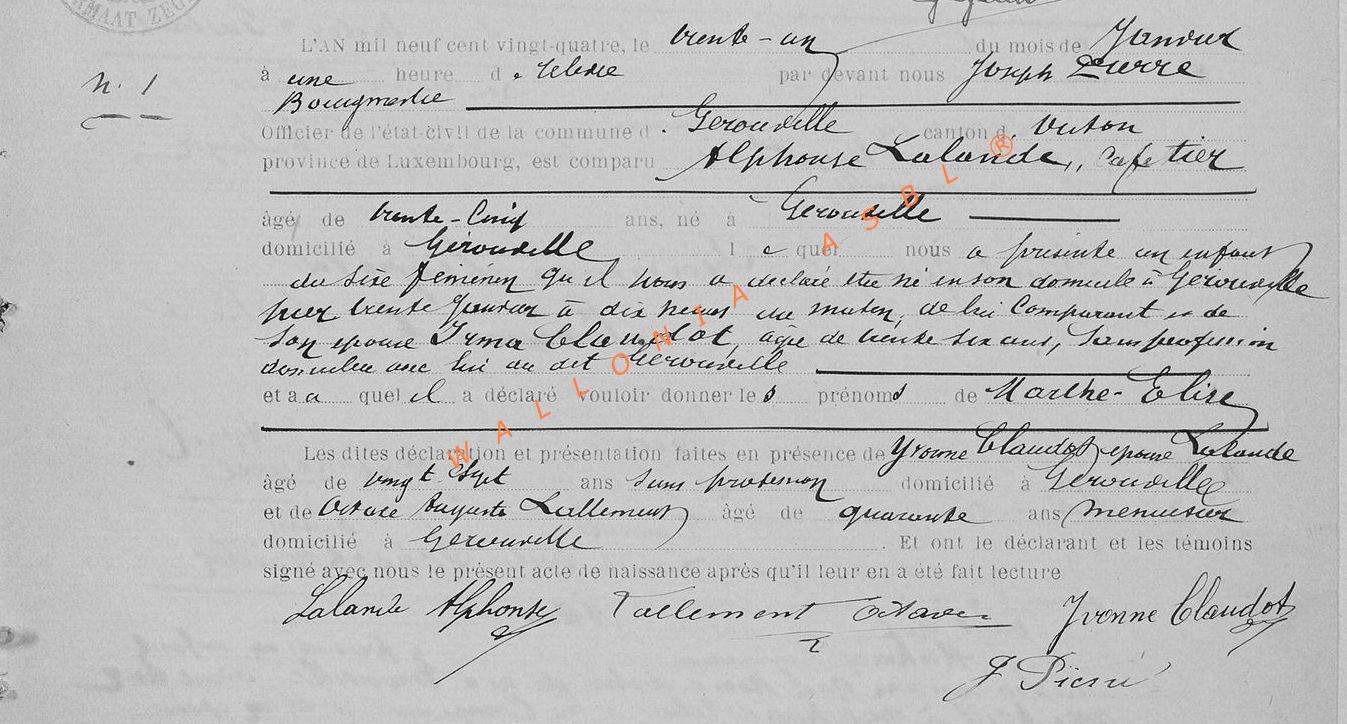 RMAAT ZEG
L'AN mil neuf cent vingt-quatre, le trente-un du mois de Janvier
N. 1
à une heure de relevée par devant nous Joseph Pierre
Bourgmestre
Officier de l'état-civil de la commune de Gérouville canton de Virton
province de Luxembourg, est comparu Alphonse Lalande, Cafetier
âgé de trente-Cinq ans, né à Gérouville
domicilié à Gérouville lequel nous a présenté un enfant
du sexe féminin qu'il nous a déclaré être né en son domicile à Gérouville
hier trente Janvier à dix heures du matin, de lui Comparant et de
son épouse Irma Claudot, âgée de trente six ans, sans profession
domiciliée avec lui au dit Gérouville
et a a quel il a déclaré vouloir donner les prénoms de Marthe-Elise
Les dites déclaration et présentation faites en présence de Yvonne Claudot, épouse Lalande
âgé de vingt sept ans sans profession domicilié à Gérouville
et de Octave Auguste Lallement âgé de quarante ans menuisier
domicilié à Gérouville. Et ont le déclarant et les témoins
signé avec nous le présent acte de naissance après qu'il leur en a été fait lecture
Lalande Alphonse Lallement Octave Yvonne Claudot
J Pierre
WALLONIA ASBL ®